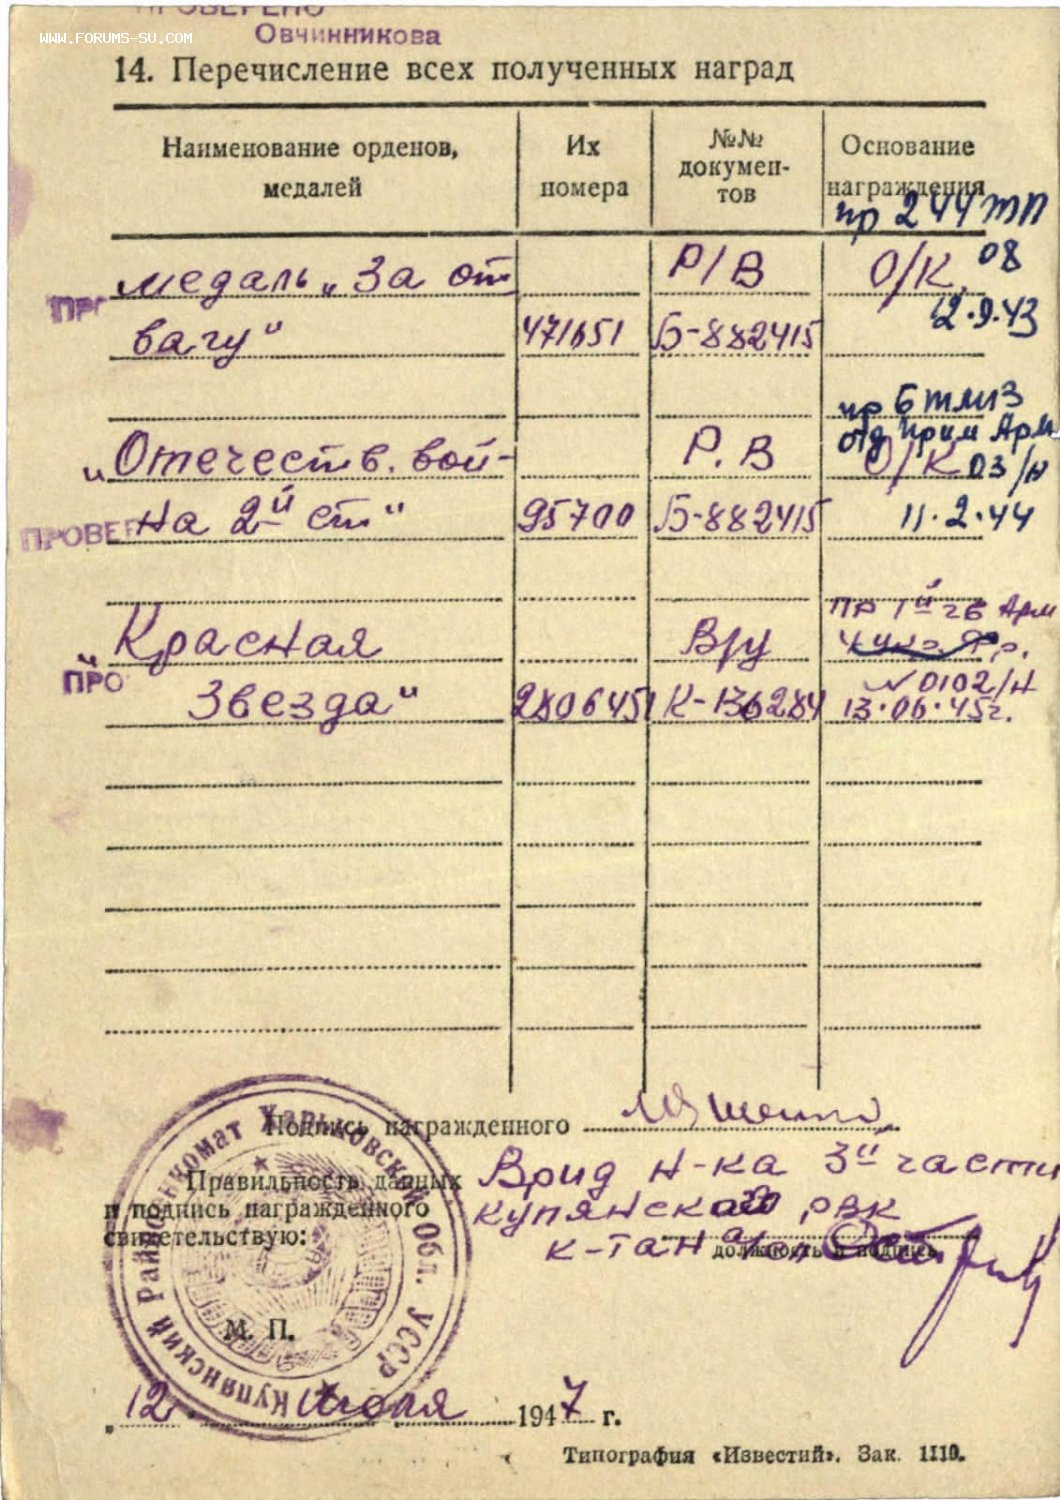 ПРОВЕРЕНО
WWW.FORUMS-SU.COM
Овчинникова
14. Перечисление всех полученных наград
Наименование орденов, медалей
Их номера
№№ документов
Основание награждения
пр 244 ТП
медаль „За от
Р/В
О/К
08
ПРО
12.9.43
вагу"
471651
Б-882415
пр 6 тмиз
отд Прим Арм
„Отечеств. вой-
Р.В
О/К 03/н
ПРОВЕР
на 2й ст"
95700
Б-882415
11.2.44
пр 1й гв Арм
„Красная
В/у
4 Укр. Фр.
ПРО
№ 0102/н
Звезда"
2806451
К-136284
13.06.45г.
Подпись награжденного
Правильность данных
и подпись награжденного
свидетельствую:
Врид н-ка 3й части
Купянского РВК
к-тан
должность и подпись
М. П.
Купянский Райвоенкомат Харьковской Обл. УССР
„12" июля 1947 г.
Типография «Известий». Зак. 1110.